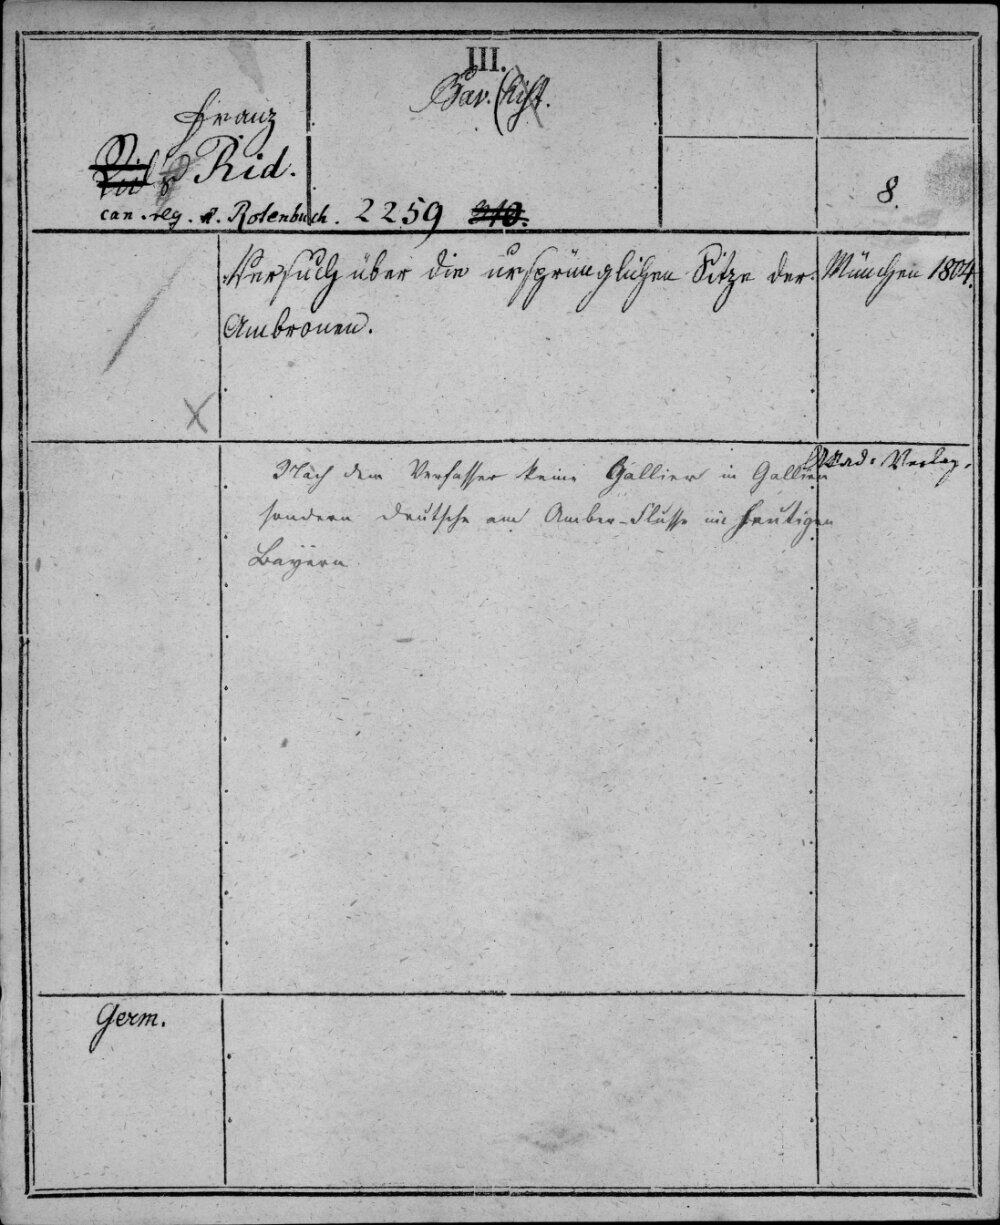 III.
Bav. Hist.
Franz
Rid.
can. reg. Rotenbuch. 2259 910.
8.
Versuch über die ursprünglichen Sitze der
Ambronen.
München 1804.
Akad. Verlag.
Nach dem Verfasser keine Gallier in Gallien
sondern Deutsche am Amber-Flusse im heutigen
Bayern
Germ.